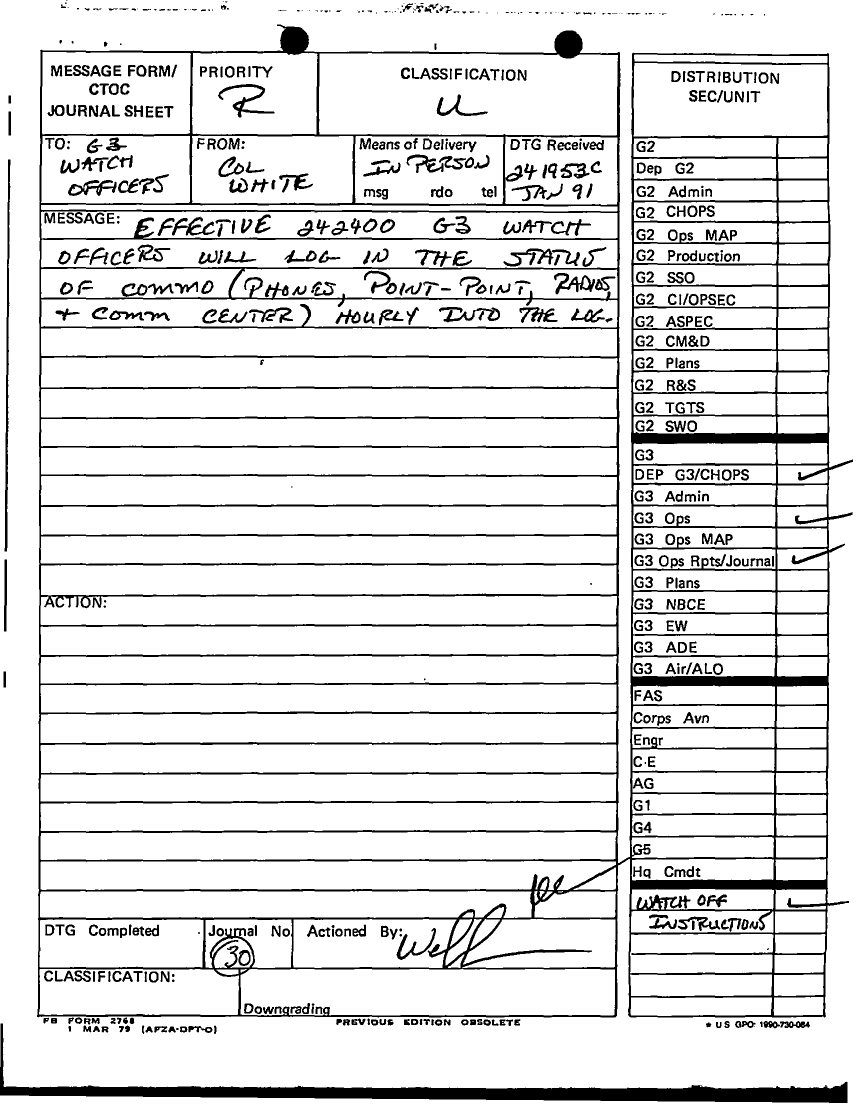 MESSAGE FORM/
CTOC
JOURNAL SHEET
PRIORITY
R
CLASSIFICATION
U
TO: G3
WATCH
OFFICERS
FROM:
COL
WHITE
Means of Delivery
IN PERSON
msg rdo tel
DTG Received
241953C
JAN 91
MESSAGE: EFFECTIVE 242400 G3 WATCH
OFFICERS WILL LOG IN THE STATUS
OF COMMO (PHONES, POINT-POINT, RADIOS,
+ COMM CENTER) HOURLY INTO THE LOG.
ACTION:
DTG Completed
Journal No.
30
Actioned By:
CLASSIFICATION:
Downgrading
FB FORM 2768
1 MAR 79 (AFZA-DPT-O)
PREVIOUS EDITION OBSOLETE
DISTRIBUTION
SEC/UNIT
G2
Dep G2
G2 Admin
G2 CHOPS
G2 Ops MAP
G2 Production
G2 SSO
G2 CI/OPSEC
G2 ASPEC
G2 CM&D
G2 Plans
G2 R&S
G2 TGTS
G2 SWO
G3
DEP G3/CHOPS
G3 Admin
G3 Ops
G3 Ops MAP
G3 Ops Rpts/Journal
G3 Plans
G3 NBCE
G3 EW
G3 ADE
G3 Air/ALO
FAS
Corps Avn
Engr
C-E
AG
G1
G4
G5
Hq Cmdt
WATCH OFF
INSTRUCTIONS
* U S GPO: 1990-730-084